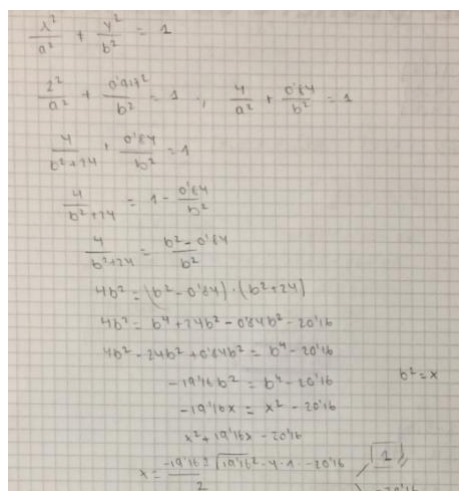 x²/a² + y²/b² = 1
2²/a² + 0'917²/b² = 1 ; 4/a² + 0'84/b² = 1
4/b²+24 + 0'84/b² = 1
4/b²+24 = 1 - 0'84/b²
4/b²+24 = b² - 0'84/b²
4b² = (b² - 0'84) · (b² + 24)
4b² = b⁴ + 24b² - 0'84b² - 20'16
4b² - 24b² + 0'84b² = b⁴ - 20'16
-19'16b² = b⁴ - 20'16 b² = x
-19'16x = x² - 20'16
x² + 19'16x - 20'16
x = -19'16 ± √19'16² - 4 · 1 · -20'16 / 2
1
-20'16